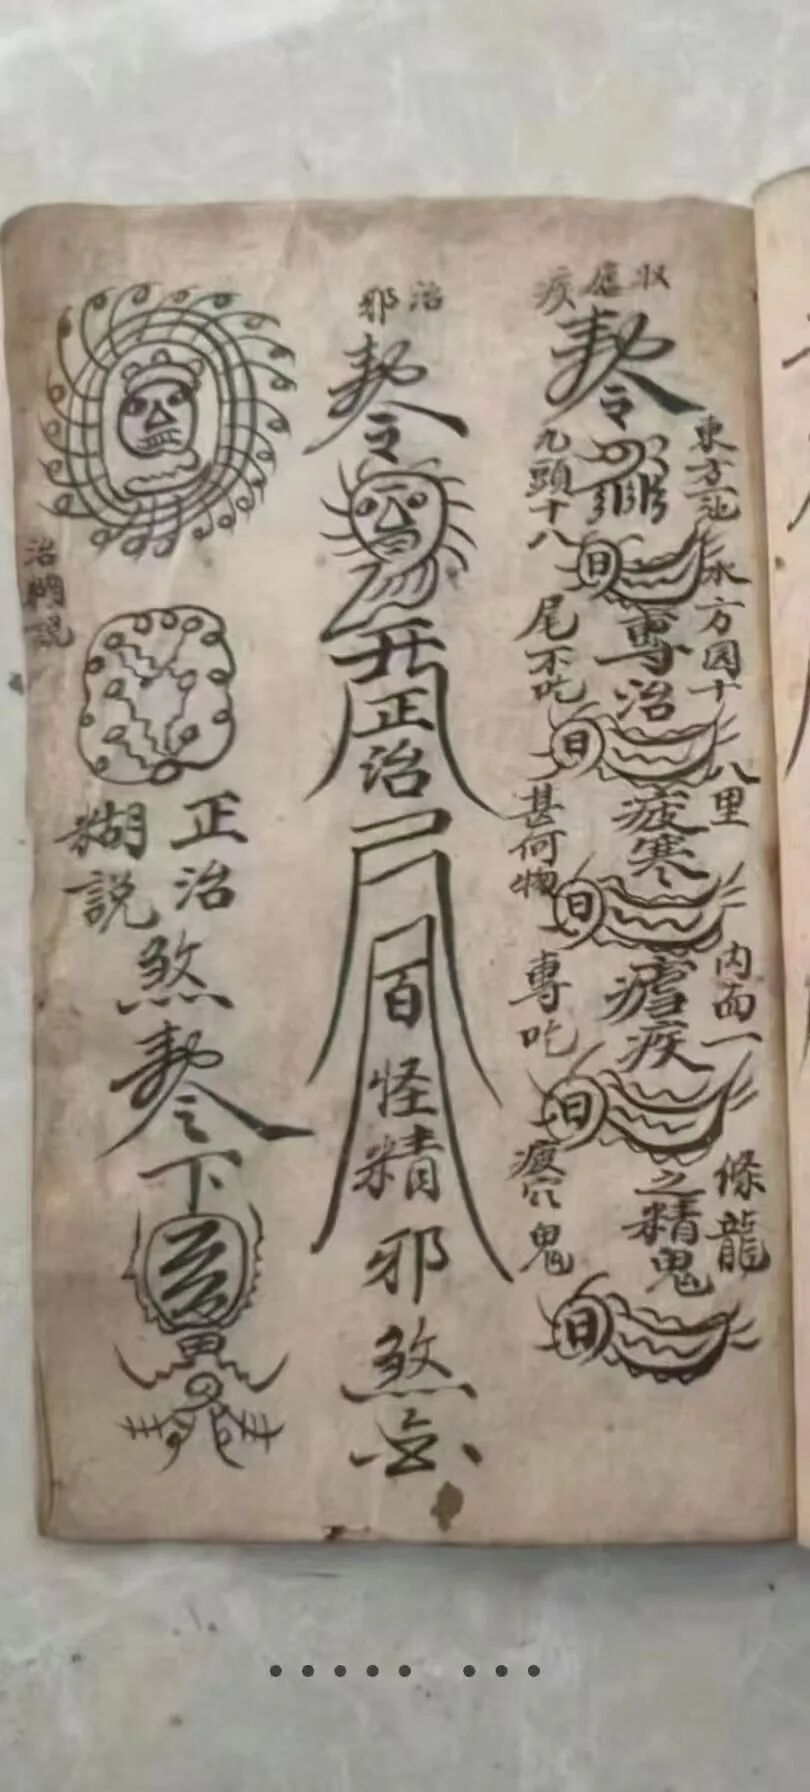 收瘧疾
敕令
東方一池水方圓十八里內面一條龍
專治疲寒瘧疾之精鬼
九頭十八尾不吃甚何物專吃疲穴鬼
日
日
日
日
日
治邪
敕令
正治百怪精邪煞
治糊說
正治糊說煞
敕令
下